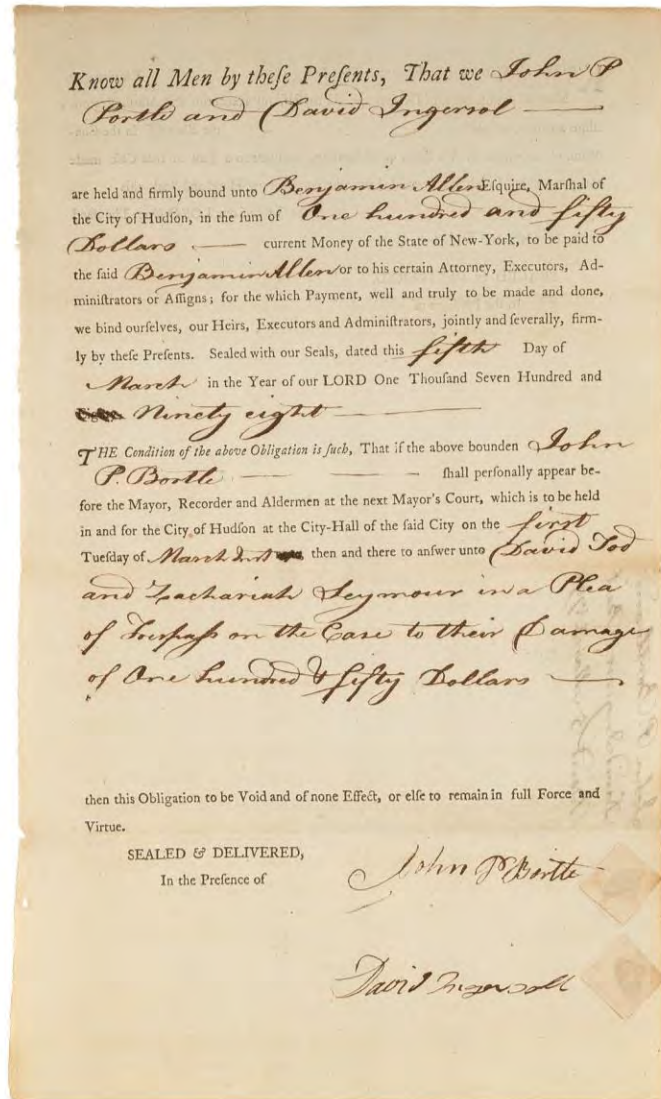 Know all Men by theſe Preſents, That we John P
Portle and David Ingersol
are held and firmly bound unto Benjamin Allen Eſquire, Marſhal of
the City of Hudſon, in the ſum of One hundred and fifty
Dollars — current Money of the State of New-York, to be paid to
the ſaid Benjamin Allen or to his certain Attorney, Executors, Ad-
miniſtrators or Aſſigns; for the which Payment, well and truly to be made and done,
we bind ourſelves, our Heirs, Executors and Adminiſtrators, jointly and ſeverally, firm-
ly by theſe Preſents. Sealed with our Seals, dated this fifth Day of
March in the Year of our LORD One Thouſand Seven Hundred and
Ninety eight —
THE Condition of the above Obligation is ſuch, That if the above bounden John
P. Bortle — ſhall perſonally appear be-
fore the Mayor, Recorder and Aldermen at the next Mayor's Court, which is to be held
in and for the City of Hudſon at the City-Hall of the ſaid City on the first
Tueſday of March then and there to anſwer unto David Tod
and Zachariah Seymour in a Plea
of Treſpaſs on the Case to their Damage
of One hundred & fifty Dollars —
then this Obligation to be Void and of none Effect, or elſe to remain in full Force and
Virtue.
SEALED & DELIVERED,
In the Preſence of
John P Bortle
David Ingersoll